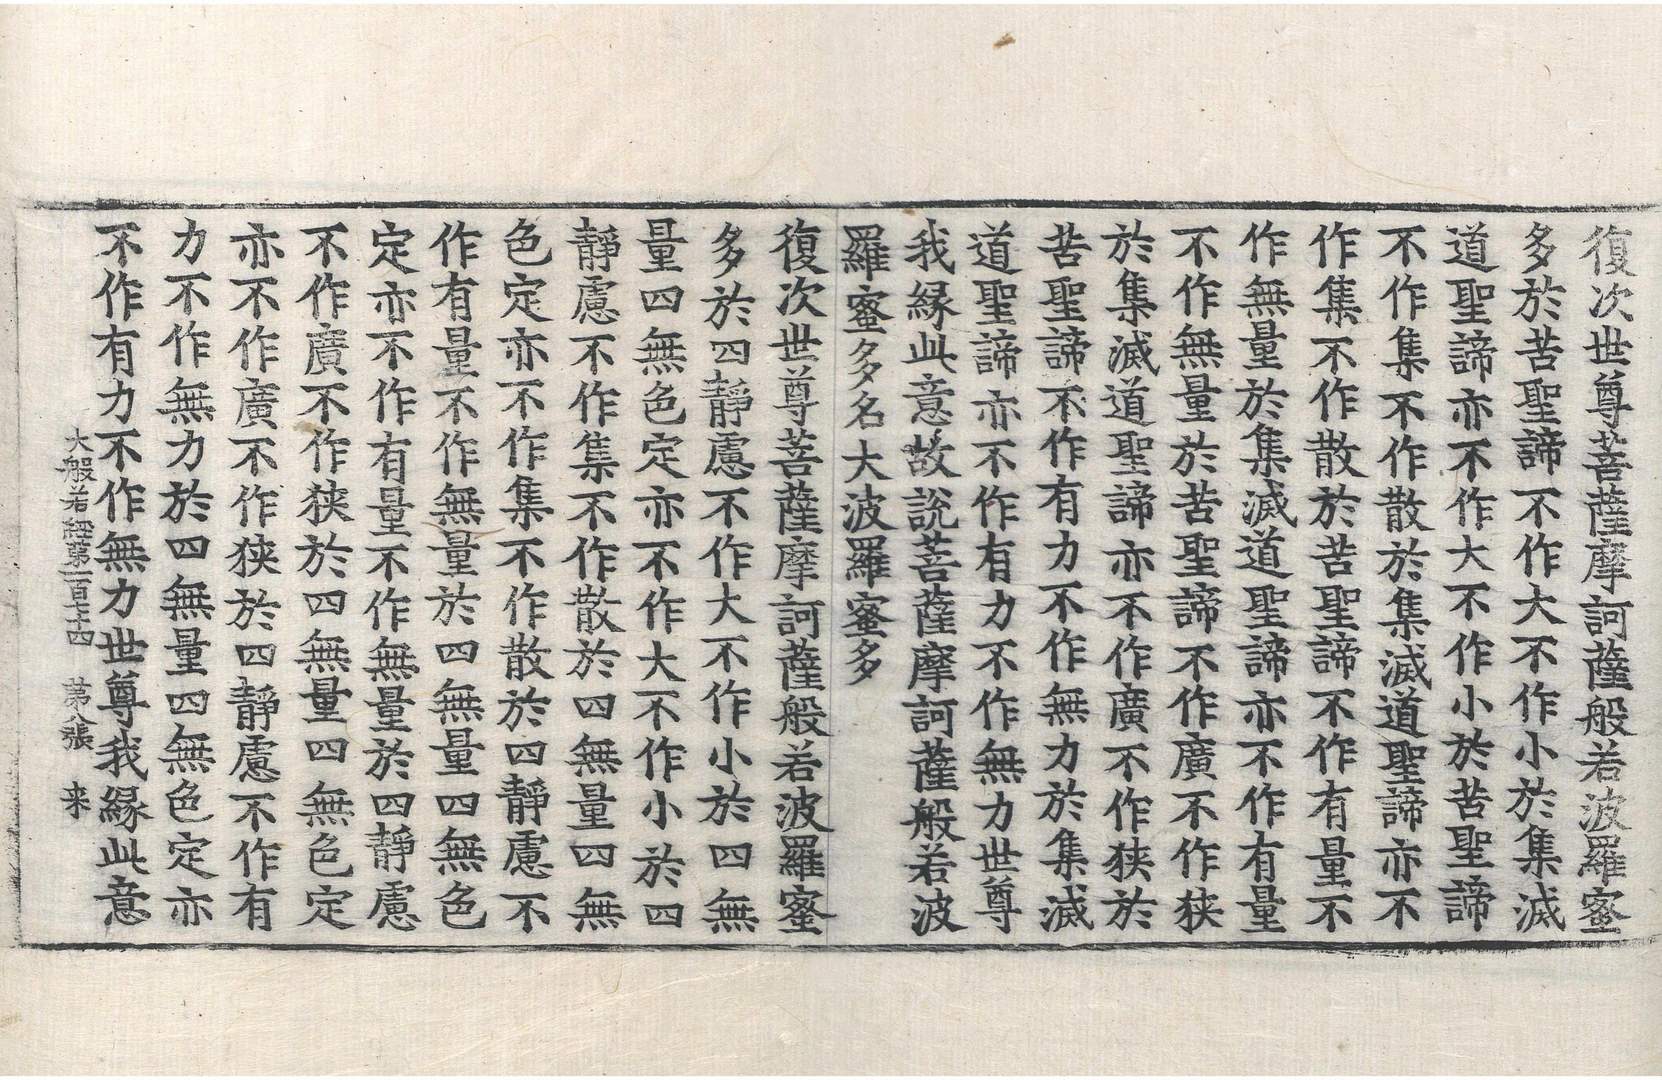 復次世尊菩薩摩訶薩般若波羅蜜
多於苦聖諦不作大不作小於集滅
道聖諦亦不作大不作小於苦聖諦
不作集不作散於集滅道聖諦亦不
作集不作散於苦聖諦不作有量不
作無量於集滅道聖諦亦不作有量
不作無量於苦聖諦不作廣不作狹
於集滅道聖諦亦不作廣不作狹於
苦聖諦不作有力不作無力於集滅
道聖諦亦不作有力不作無力世尊
我緣此意故說菩薩摩訶薩般若波
羅蜜多名大波羅蜜多
復次世尊菩薩摩訶薩般若波羅蜜
多於四靜慮不作大不作小於四無
量四無色定亦不作大不作小於四
靜慮不作集不作散於四無量四無
色定亦不作集不作散於四靜慮不
作有量不作無量於四無量四無色
定亦不作有量不作無量於四靜慮
不作廣不作狹於四無量四無色定
亦不作廣不作狹於四靜慮不作有
力不作無力於四無量四無色定亦
不作有力不作無力世尊我緣此意
大般若經第一百七十四 第八張 来